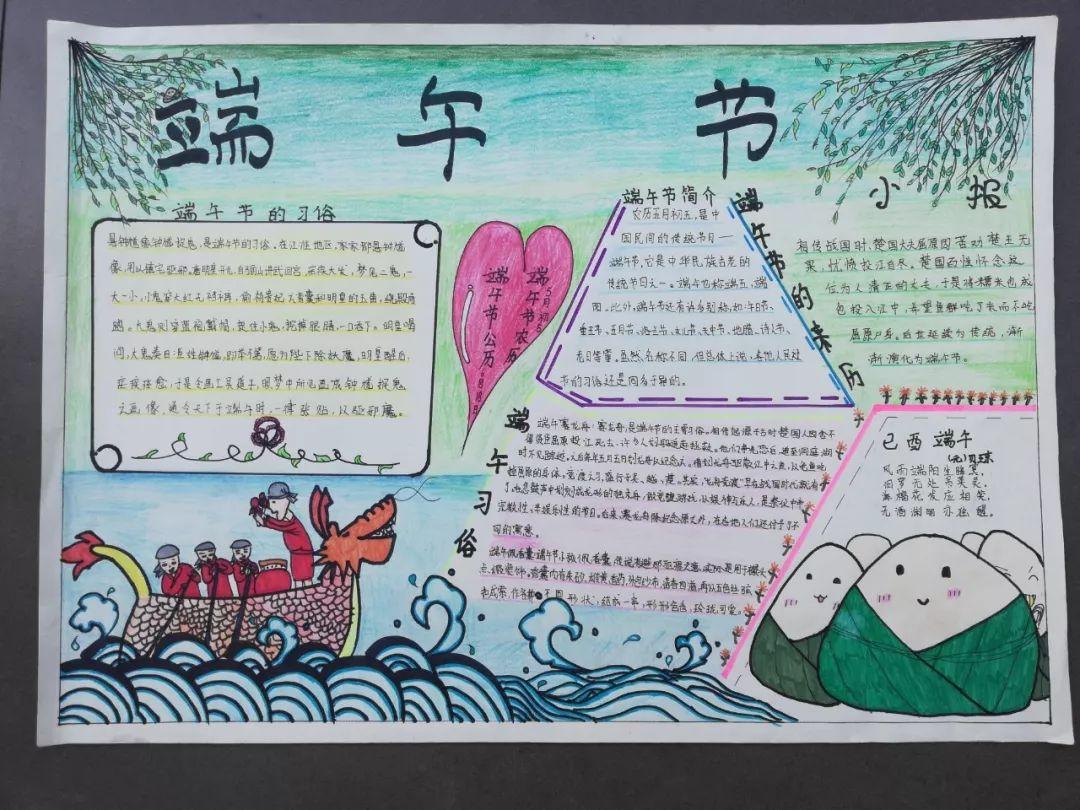 端午节
小报
端午节的习俗
悬钟馗像钟馗捉鬼,是端午节的习俗。在江淮地区,家家都悬钟馗
像,用以镇宅驱邪。唐明皇开元,自骊山讲武回宫,疟疾大发,梦见二鬼,一
大一小,小鬼穿大红无裆裤,偷杨贵妃之香囊和明皇的玉笛,绕殿而
跑。大鬼则穿蓝袍戴帽,捉住小鬼,挖掉眼睛,一口吞下。明皇喝
问,大鬼奏曰:臣姓钟馗,即武举不第,愿为陛下除妖魔,明皇醒后,
疟疾痊愈,于是令画工吴道子,照梦中所见画成钟馗捉鬼
之画像,通令天下于端午时,一律张贴,以驱邪魔。
端午节农历
5月初5
端午节公历
端午节简介
农历五月初五,是中
国民间的传统节日——
端午节,它是中华民族古老的
传统节日之一。端午也称端五,端
阳。此外,端午节还有许多别称,如:午日节、
重五节、五月节、浴兰节、女儿节、天中节、地腊、诗人节、
龙日等等。虽然名称不同,但总体上说,各地人民过
节的习俗还是同多于异的。
端午节的来历
相传战国时,楚国大夫屈原因苦劝楚王无
果,忧愤投江自尽。楚国百姓怀念这
位为人清正的大夫,于是将糯米也成
包投入江中,希望鱼鲜吃了米而不吃
屈原尸身。后世延续为传统,渐
渐演化为端午节。
端午习俗
端午赛龙舟:赛龙舟,是端午节的主要习俗。相传起源于古时楚国人因舍不
得贤臣屈原投江死去,许多人划船追赶拯救。他们争先恐后,追至洞庭湖
时不见踪迹。之后每年五月五日划龙舟以纪念之。借划龙舟驱散江中之鱼,以免鱼吃
掉屈原的身体。竞渡之习,盛行于吴、越、楚。其实,“龙舟竞渡”早在战国时代就有
了。
同的寓意。
端午佩香囊:端午节小孩佩香囊,传说有避邪驱瘟之意,实际是用于襟头
点缀装饰。香囊内有朱砂、雄黄、香药,外包以丝布,清香四溢,再以五色丝线弦
扣成索,作各种不同形状,结成一串,形形色色,玲珑可爱。
己酉端午
(元)贝琼
风雨端阳生晦冥,
汨罗无处吊英灵。
海榴花发应相笑,
无酒渊明亦独醒。